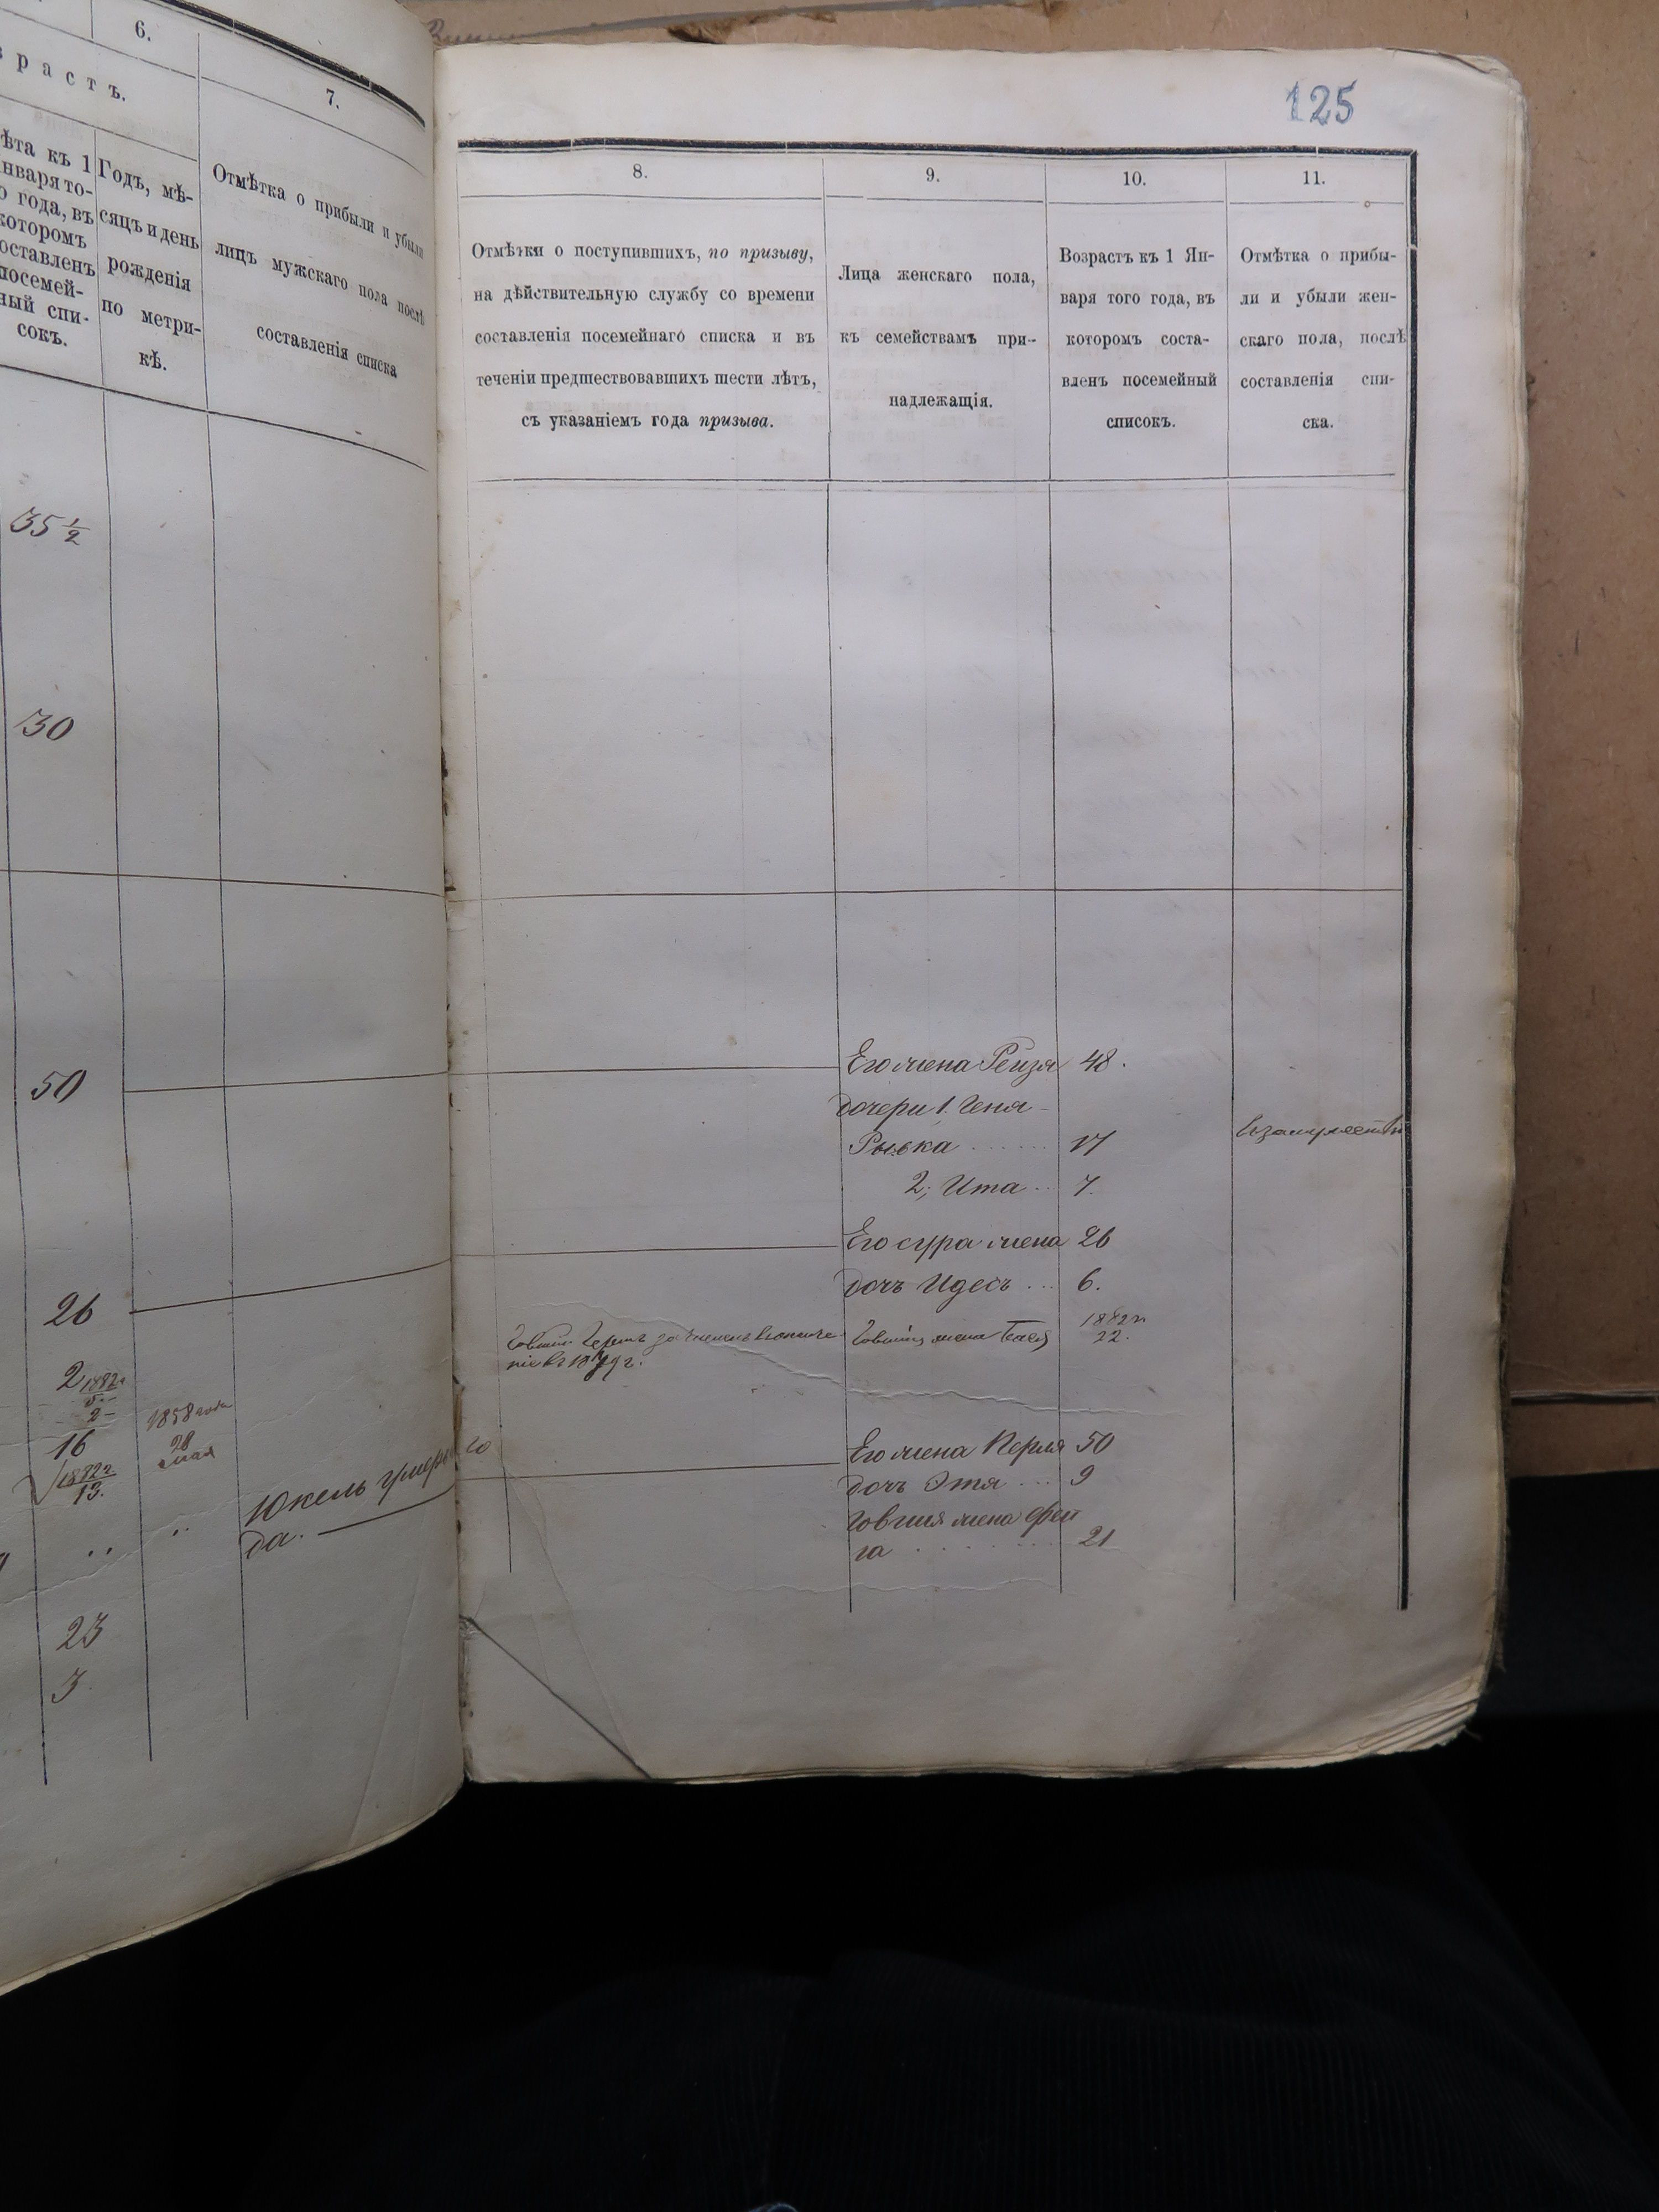 6.
зрастъ.
ѣта къ 1
нваря то-
о года, въ
которомъ
оставленъ
посемей-
ный спи-
сокъ.
Годъ, мѣ-
сяцъ и день
рожденія
по метри-
кѣ.
7.
Отмѣтка о прибыли и убыли
лицъ мужскаго пола послѣ
составленія списка
35 1/2
30
50
26
2 1882г
5
2
16
1882г
13.
1858 года
28
мая
Юкель умеръ
да.
23
3
125
8.
Отмѣтки о поступившихъ, по призыву,
на дѣйствительную службу со времени
составленія посемейнаго списка и въ
теченіи предшествовавшихъ шести лѣтъ,
съ указаніемъ года призыва.
9.
Лица женскаго пола,
къ семействамъ при-
надлежащія.
10.
Возрастъ къ 1 Ян-
варя того года, въ
которомъ соста-
вленъ посемейный
списокъ.
11.
Отмѣтка о прибы-
ли и убыли жен-
скаго пола, послѣ
составленія спи-
ска.
Его жена Рейза 48.
дочери 1. Геня
Рывка 17
2, Ита 7.
Его сура жена 26
дочь Идесъ 6.
жена 1882г
22.
1879г.
Его жена Перля 50
дочь Этя 9
Товшия жена Фей
га 21